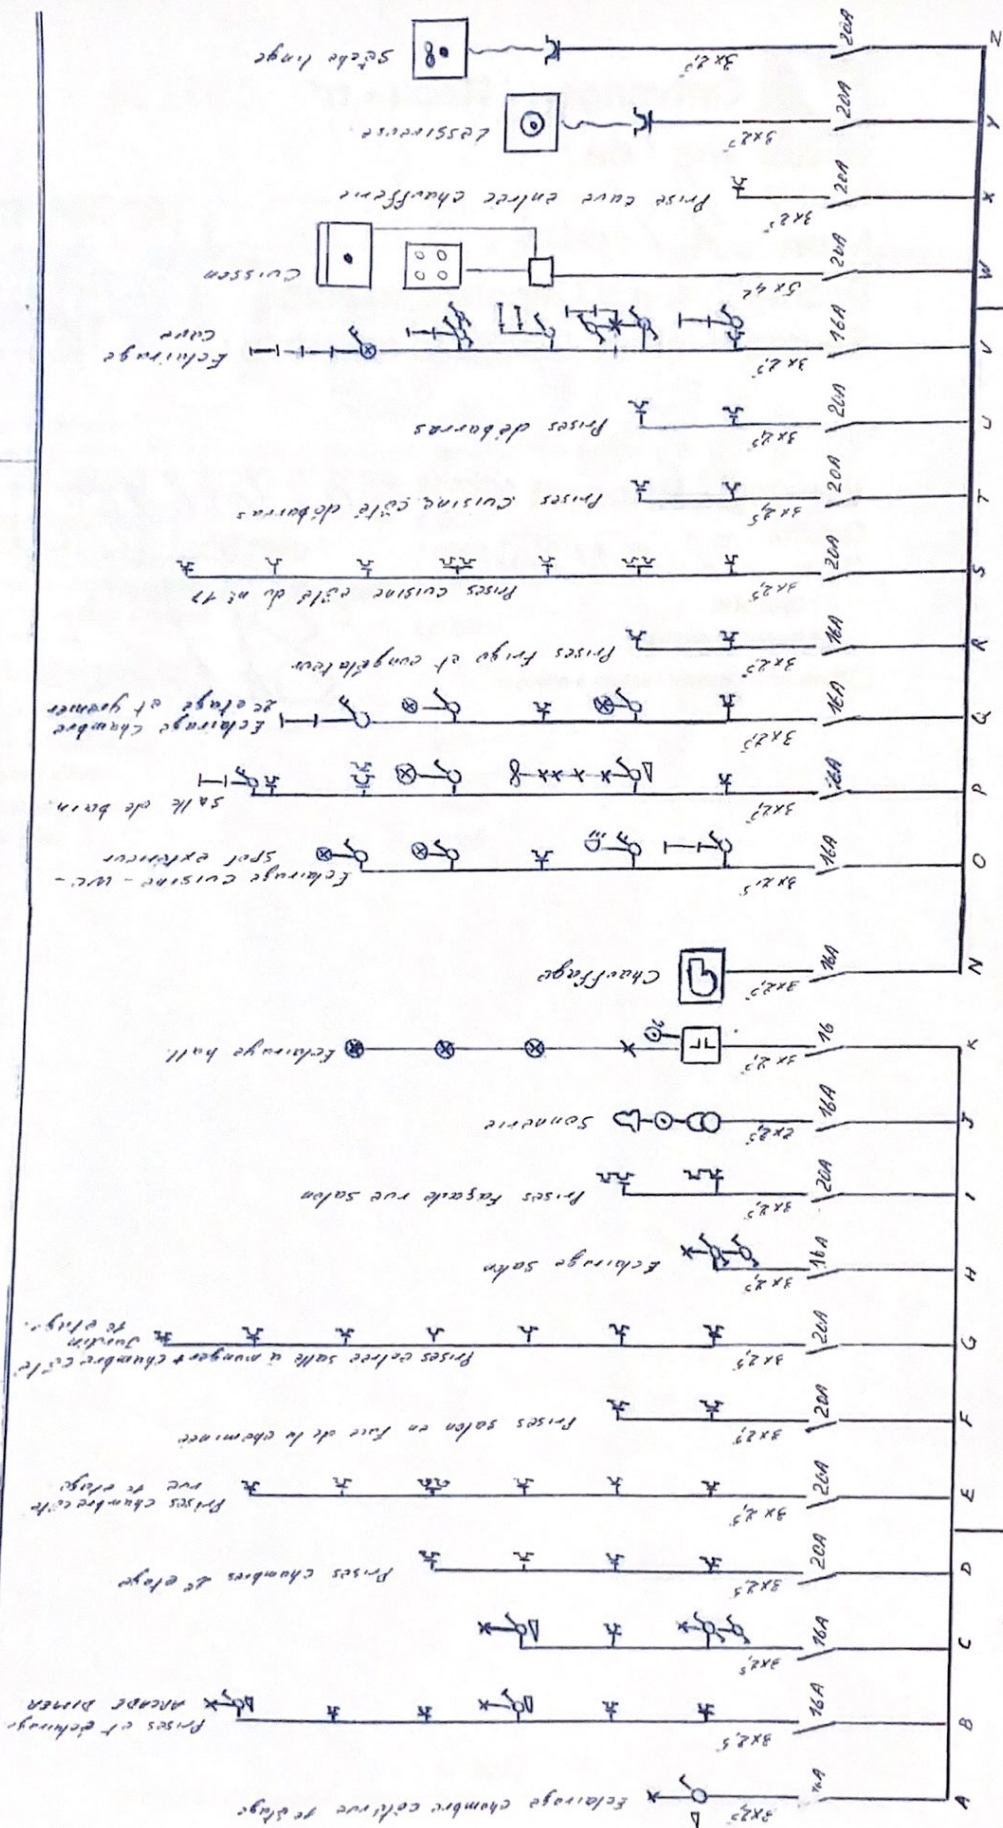 A
16A
3x2,5
Eclairage chambre côté rue 1e étage
B
16A
3x2,5
Prises et éclairage
ARCADE DIMER
C
16A
3x2,5
D
20A
3x2,5
Prises chambres 2e étage
E
20A
3x2,5
Prises chambre côté
rue 1e étage
F
20A
3x2,5
Prises salon en face de la cheminée
G
20A
3x2,5
Prises entrée salle à manger + chambre côté
Jardin
1e étage.
H
16A
3x2,5
Eclairage salon
I
20A
3x2,5
Prises façade rue salon
J
16A
2x2,5
Sonnerie
K
16
3x2,5
Eclairage hall.
N
16A
3x2,5
Chauffage
O
16A
3x2,5
Eclairage cuisine - WC -
spot extérieur
P
16A
3x2,5
salle de bain.
Q
16A
3x2,5
Eclairage chambre
2e étage et grenier
R
16A
3x2,5
Prises Frigo et congélateur
S
20A
3x2,5
Prises cuisine côté du n° 17
T
20A
3x2,5
Prises cuisine côté débarras
U
20A
3x2,5
Prises débarras
V
16A
3x2,5
Eclairage
cave
W
20A
5x4²
Cuisson
X
20A
3x2,5
Prise cave entrée chaufferie
Y
20A
3x2,5
Lessiveuse.
Z
20A
3x2,5
Sèche linge